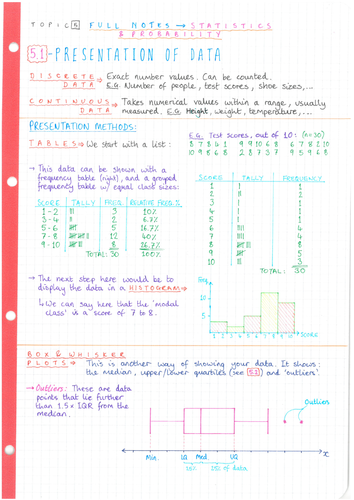 TOPIC 5 FULL NOTES → STATISTICS
& PROBABILITY
5.1 - PRESENTATION OF DATA
DISCRETE DATA → Exact number values. Can be counted.
E.G. Number of people, test scores, shoe sizes,...
CONTINUOUS DATA → Takes numerical values within a range, usually
measured. E.G. Height, weight, temperature,...
PRESENTATION METHODS:
TABLES → We start with a list:
E.G. Test scores, out of 10: (n=30)
→ This data can be shown with a
frequency table (right), and a grouped
frequency table w/ equal class sizes:
SCORE TALLY FREQ. RELATIVE FREQ.%
1-2 3 10%
3-4 2 6.7%
5-6 5 16.7%
7-8 12 40%
9-10 8 26.7%
TOTAL: 30 100%
SCORE TALLY FREQUENCY
1
2
3
4
5
6
7
8
9 5
10 3
TOTAL: 30
→ The next step here would be to
display the data in a HISTOGRAM →
↳ We can say here that the 'modal
class' is a score of 7 to 8.
freq
SCORE
BOX & WHISKER
PLOTS → This is another way of showing your data. It shows:
the median, upper/lower quartiles (see 5.2) and 'outliers'.
→ Outliers: These are data
points that lie further
than 1.5 x IQR from the
median.
Outliers
Min. LQ Med UQ x
25% 25% of data